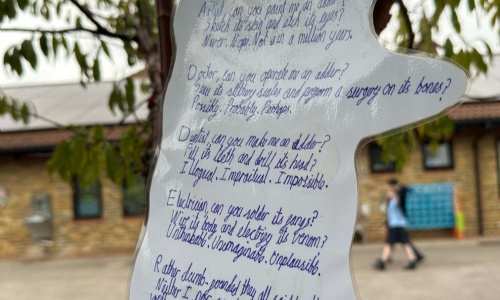 Artist, can you paint me an adder?
Sketch its skin and etch its eyes?
Never. Nope. Not in a million years.
Doctor, can you operate me an adder?
Sew its slithery scales and perform a surgery on its bones?
Possibly. Probably. Perhaps.
Dentist, can you make me an adder?
Fill its teeth and drill its head?
Illogical. Impractical. Impossible.
Electrician can you solder its fangs?
Wire its body and electrify its venom?
Unthinkable. Unimaginable. Implausible.
Rather dumb-founded they all
Neither I nor